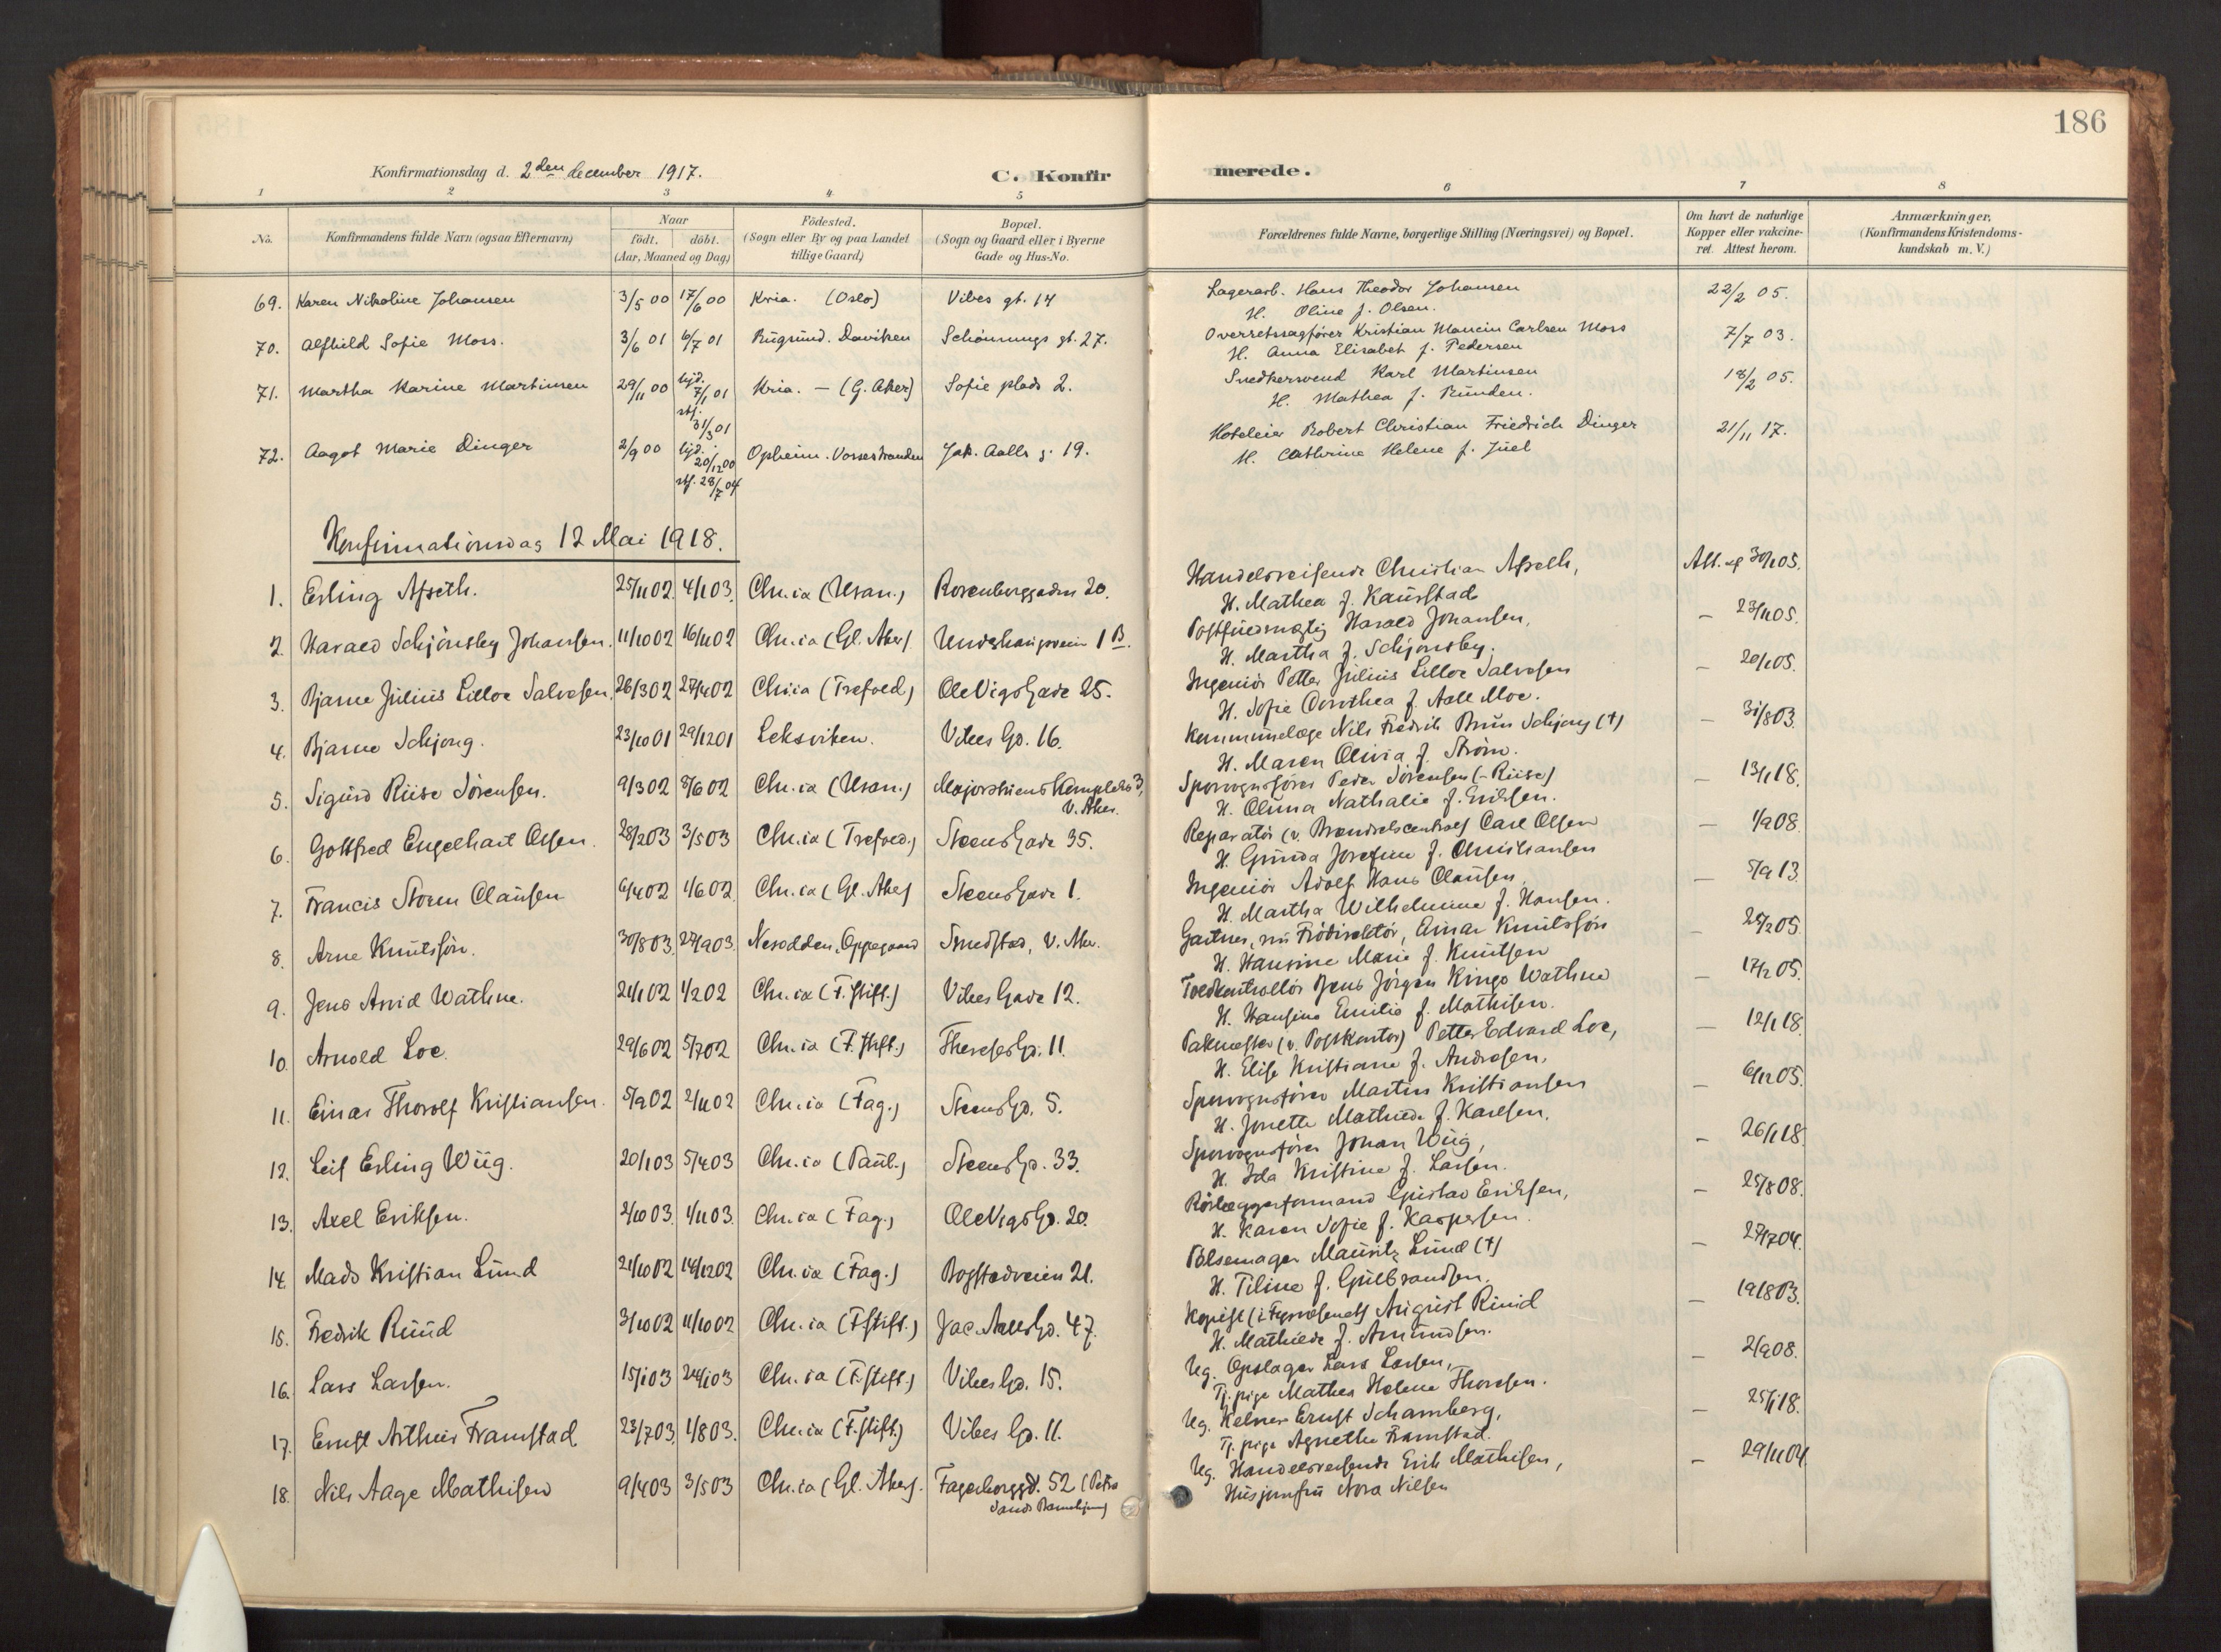 186
Konfirmationsdag d. 2den december 1917.
C. Konfirmerede.
1 2 3 4 5 6 7 8
No.
Konfirmandens fulde Navn (ogsaa Efternavn)
Naar
født. døbt.
(Aar, Maaned og Dag)
Fødested.
(Sogn eller By og paa Landet
tillige Gaard)
Bopæl.
(Sogn og Gaard eller i Byerne
Gade og Hus-No.
Forældrenes fulde Navne, borgerlige Stilling (Næringsvei) og Bopæl.
Om havt de naturlige
Kopper eller vakcine-
ret. Attest herom.
Anmærkninger,
(Konfirmandens Kristendoms-
kundskab m. V.)
69. Karen Nikoline Johansen 3/5 00 17/6 00 Kria. (Oslo) Vibes gt. 14 Lagerarb. Hans Theodor Johansen 22/2 05.
H. Oline f. Olsen.
70. Alfhild Sofie Moss. 3/6 01 6/7 01 Rugsund. Daviken Schønnings gt. 27. Overretssagfører Kristian Mancin Carlsen Moss 7/7 03.
H. Anna Elisabet f. Pedersen
71. Martha Karine Martinsen 29/11 00 hjd. 7/1 01 Kria. — (G. Aker) Sofie plads 2. Snedkersvend Karl Martinsen 18/2 05.
stf. 31/3 01
H. Mathea f. Runden.
72. Aagot Marie Dinger 2/9 00 hjd. 20/12 00 Opheim. Vossestranden Jak. Aalls g. 19. Hoteleier Robert Christian Friedrich Dinger 21/11 17.
stf. 28/7 04
H. Cathrine Helene f. Juel
Konfirmationsdag 12 Mai 1918.
1. Erling Apseth. 25/11 02. 4/1 03. Chr.ia (Uran.) Rosenborggaden 20. Handelsreisende Christian Apseth, Att. af 30/1 05.
H. Mathea f. Kaurstad
2. Harald Schjønsby Johansen. 11/10 02 16/11 02 Chr.ia (Gl. Aker) Underhaugsveien 1 B. Postfuldmægtig Harald Johansen, — 23/11 05.
H. Martha f. Schjønsby.
3. Bjarne Julius Lilloe Salvesen. 26/3 02 27/4 02 Chr.ia (Trefold.) Ole Vigs Gade 25. Ingeniør Petter Julius Lilloe Salvesen — 20/1 05.
H. Sofie Dorothea f. Aall Moe.
4. Bjarne Schjong. 23/10 01 29/12 01 Leksviken. Vibes Gd. 16. Kommunelæge Nils Fredrik Bruun Schjong (†) — 31/8 03.
H. Maren Olivia f. Strøm.
5. Sigurd Riise Sørensen. 9/3 02 8/6 02 Chr.ia (Uran.) Majorstuens Kompleks 3, Sporvognsfører Peder Sørensen (-Riise) — 13/1 18.
V. Aker.
H. Oluna Nathalie f. Eriksen.
6. Gottfred Engelhart Olsen. 28/2 03 3/5 03 Chr.ia (Trefold.) Steens Gade 35. Reparatør (v. Brændselscentral) Carl Olsen — 1/9 08.
H. Gunda Josefine f. Christiansen
7. Francis Storm Clausen 6/4 02 1/6 02 Chr.ia (Gl. Aker) Steens Gade 1. Ingeniør Adolf Hans Clausen, — 5/9 13.
H. Martha Wilhelmine f. Hansen.
8. Arne Knutsøn. 30/8 03. 27/9 03. Nesodden, Oppegaard Smedstad, V. Aker. Gartner, nu Frødirektør, Einar Knutssøn — 25/2 05.
H. Hansine Marie f. Knutsen
9. Jens Arvid Wathne. 21/1 02 1/2 02 Chr.ia (F. stift.) Vibes Gade 12. Toldkontrollør Jens Jørgen Kingo Wathne — 17/2 05.
H. Hansine Emilie f. Mathisen.
10. Arnold Loe. 29/6 02 5/7 02 Chr.ia (F. stift.) Thereses Gd. 11. Pakmester (v. Postkontor) Petter Edvard Loe, — 12/1 18.
H. Elise Kristiane f. Andresen.
11. Einar Thorolf Kristiansen. 5/9 02 2/11 02 Chr.ia (Fag.) Steens Gd. 5. Sporvognsfører Martin Kristiansen — 6/12 05.
H. Jonette Mathilde f. Karlsen.
12. Leif Erling Wiig. 20/1 03 5/4 03 Chr.ia (Paul.) Steens Gd. 33. Sporvognsfører Johan Wiig, — 26/1 18.
H. Ida Kristine f. Larsen.
13. Axel Eriksen. 2/10 03. 1/11 03. Chr.ia (Fag.) Ole Vigs Gd. 20. Rørlæggerformand Gustav Eriksen, — 25/8 08.
H. Karen Sofie f. Kaspersen.
14. Mads Kristian Lund 21/10 02 14/12 02 Chr.ia (Fag.) Bogstadveien 21. Pølsemager Mauritz Lund (†) — 27/7 04.
H. Tiline f. Gulbrandsen.
15. Fredrik Ruud 3/10 02 11/10 02 Chr.ia (F. stift.) Jac. Aalls Gd. 47. Kopist (i Fyrvæsenet) August Ruud — 19/8 03.
H. Mathilde f. Amundsen.
16. Lars Larsen. 15/1 03 24/1 03 Chr.ia (F. stift.) Vibes Gd. 15. Ug. Opslager Lars Larsen, — 2/9 08.
Tj. pige Mathea Helene Thoresen.
17. Ernst Arthur Framstad. 23/7 03. 1/8 03. Chr.ia (F. stift.) Vibes Gd. 11. Ug. Kelner Ernst Schamberg, — 25/1 18.
Tj. pige Agnethe Framstad.
18. Nils Aage Mathisen 9/4 03 3/5 03 Chr.ia (Gl. Aker). Fagerborggd. 52 (Petra Ug. Handelsreisende Erik Mathisen, — 29/11 04.
Sands Barnehjem)
Husjomfru Nora Nilsen